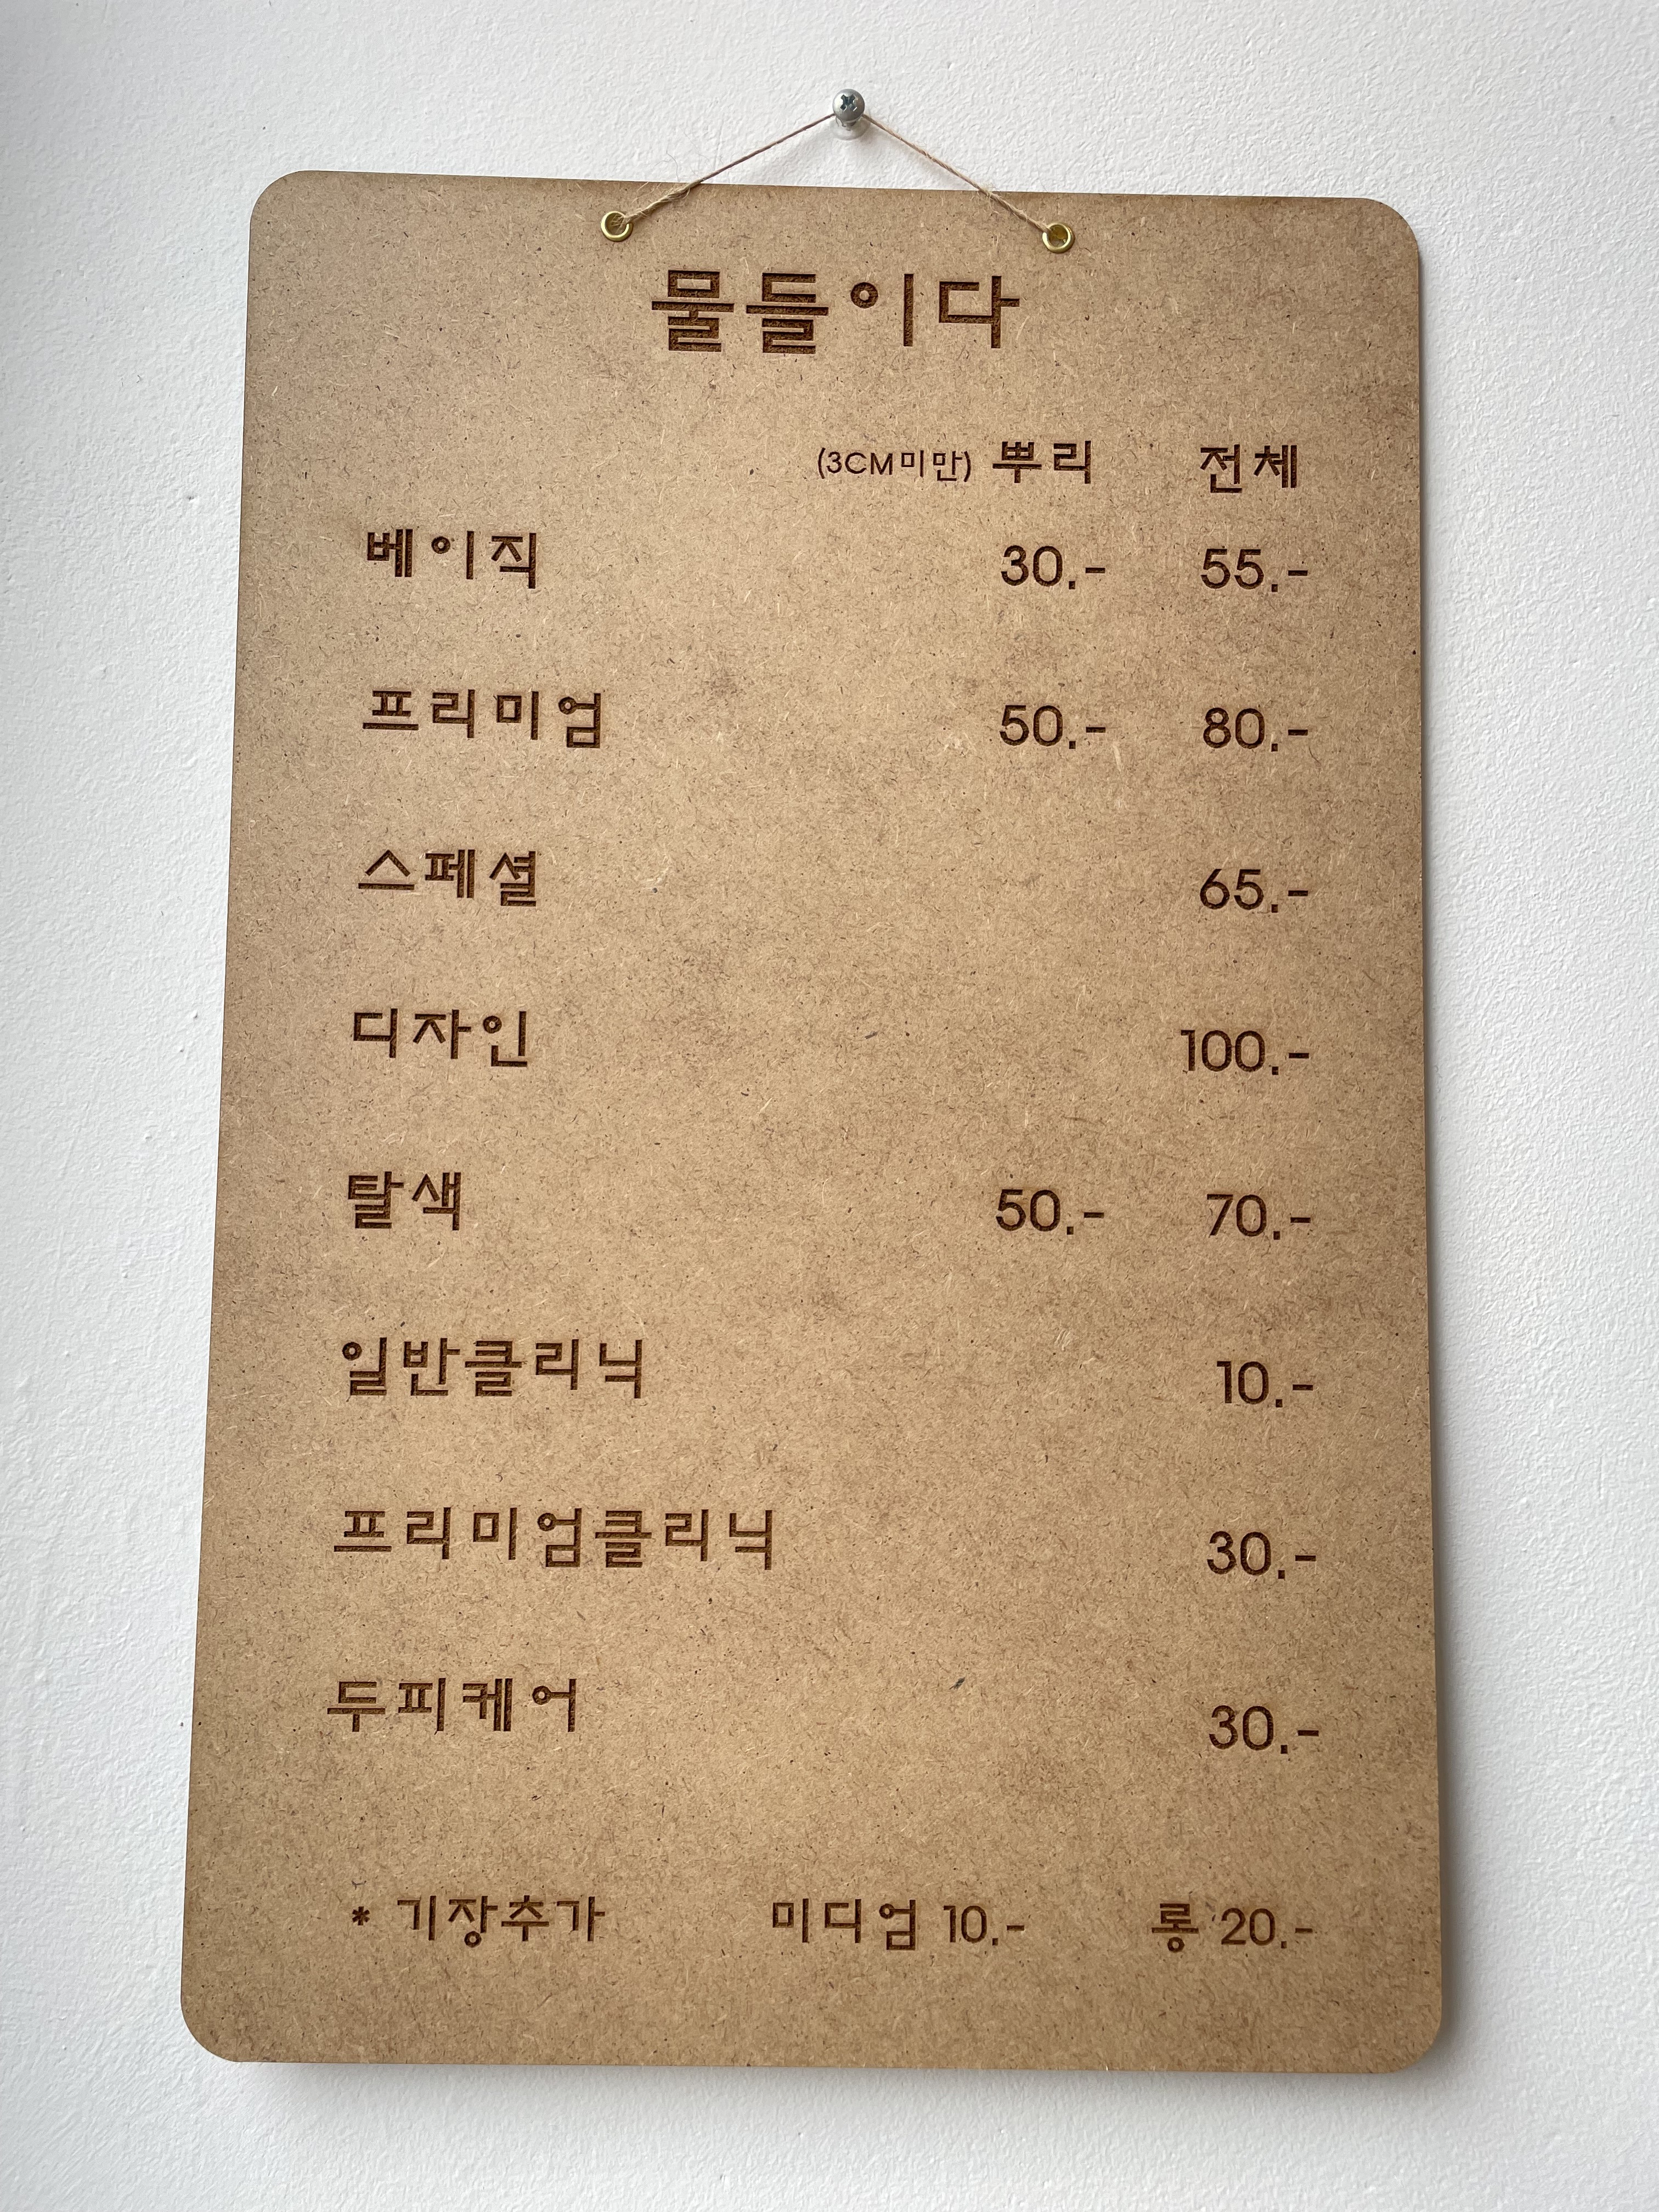 물들이다
(3CM미만) 뿌리 전체
베이직 30.- 55.-
프리미엄 50.- 80.-
스페셜 65.-
디자인 100.-
탈색 50.- 70.-
일반클리닉 10.-
프리미엄클리닉 30.-
두피케어 30.-
* 기장추가 미디엄 10.- 롱 20.-